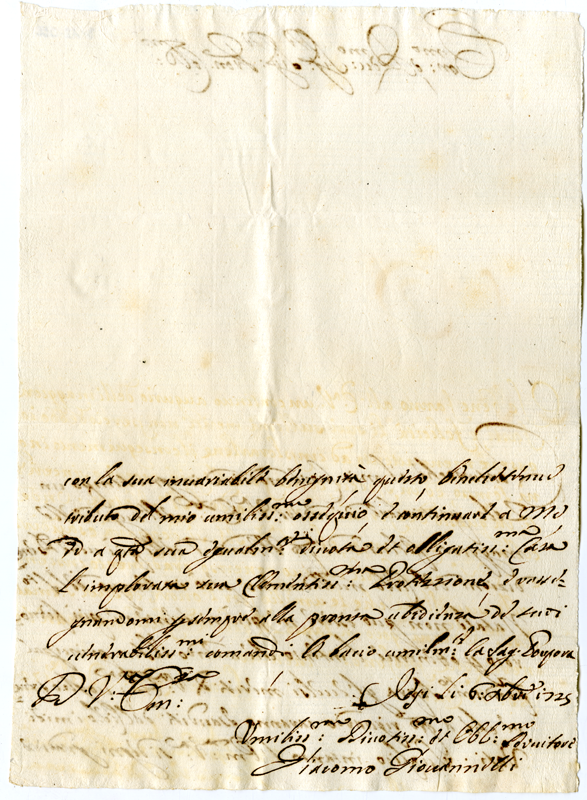 con la sua invariabile benignità questo benchè tenue
tributo del mio umiliss:mo ossequio, e continuare a me
ed a qta sua egualm:te divota et obligatiss:ma Casa
l'implorata sua Clementiss:ma Protezione, e rasse-
gnandomi p sempre alla pronta ubidienza de suoi
venerabiliss:mi comandi le bacio umilm:te la sag: Porpora
D V: Em:
Jesi li 6: Xbre 1725
Umiliss:mo Divotiss:mo et Obbl:mo Servitore
Giacomo Giovannelli